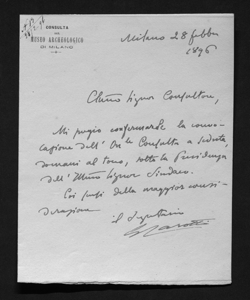 CONSULTA
DEL
MUSEO ARCHEOLOGICO
DI MILANO
Milano 28 febbr
1896
Chmo Signor Consultore,
Mi pregio confermarle la convo-
cazione dell' On. Consulta a seduta,
domani al tocco, sotto la Presidenza
dell' Illmo Signor Sindaco.
Coi sensi della maggior consi-
derazione
il Segretario